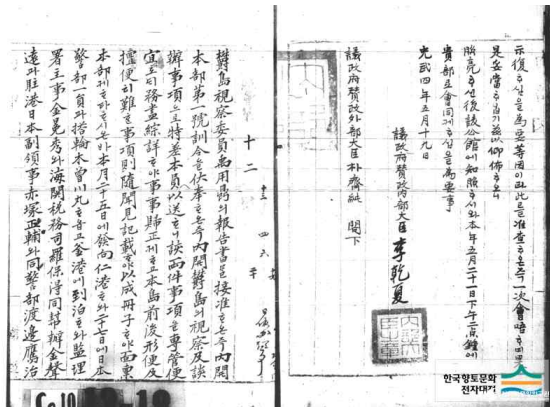 示復하심을爲要等因이라此를准查하온즉一次會晤하미果
是妥當하기玆以仰佈하오니
照亮하신後該公館에知照하시와本年五月二十一日下午二点鐘에
貴部로會同케하심을爲要事
光武四年五月十九日
議政府贊政內部大臣李乾夏
議政府贊政外部大臣朴齊純 閣下
十二
鬱島視察委員禹用鼎의報告書를接准하온즉內開
本部第一號訓令을伏奉하온즉內開鬱島의視察及談
辦事項으로特差本員以送하니該兩件事項을專管便
宜호되務盡綜詳하야事事歸正케하고本島前後形便及
擅便키難한事項則隨聞見記載하야以成冊子하야面東
本部케하라하시온바本月二十五日에發向仁港하와二十七日에日本
警部一員과搭輪木曾川丸하옵고釜港에到泊하와監理
署主事金冕秀와海關稅務司羅保得同幫辦金聲
遠과駐港日本副領事赤塚正輔와同警部渡邊鷹治
한국향토문화
전자대전